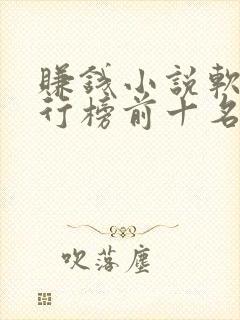 賺錢小說軟
行榜前十名
吹落塵